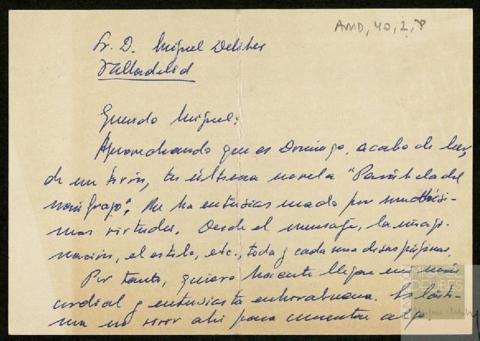 AMD, 40, 2, 8
Sr. D. Miguel Delibes
Valladolid
Querido Miguel:
Aprovechando que es Domingo, acabo de leer,
de un tirón, tu última novela "Parábola del
náufrago". Me ha entusiasmado por muchísi-
mas virtudes. Desde el mensaje, la imagi-
nación, el estilo, etc., toda y cada una de sus páginas.
Por tanto, quiero hacerte llegar mi más
cordial y entusiasta enhorabuena. Es lásti-
ma no vivir ahí para comentar algo.
DELIBES